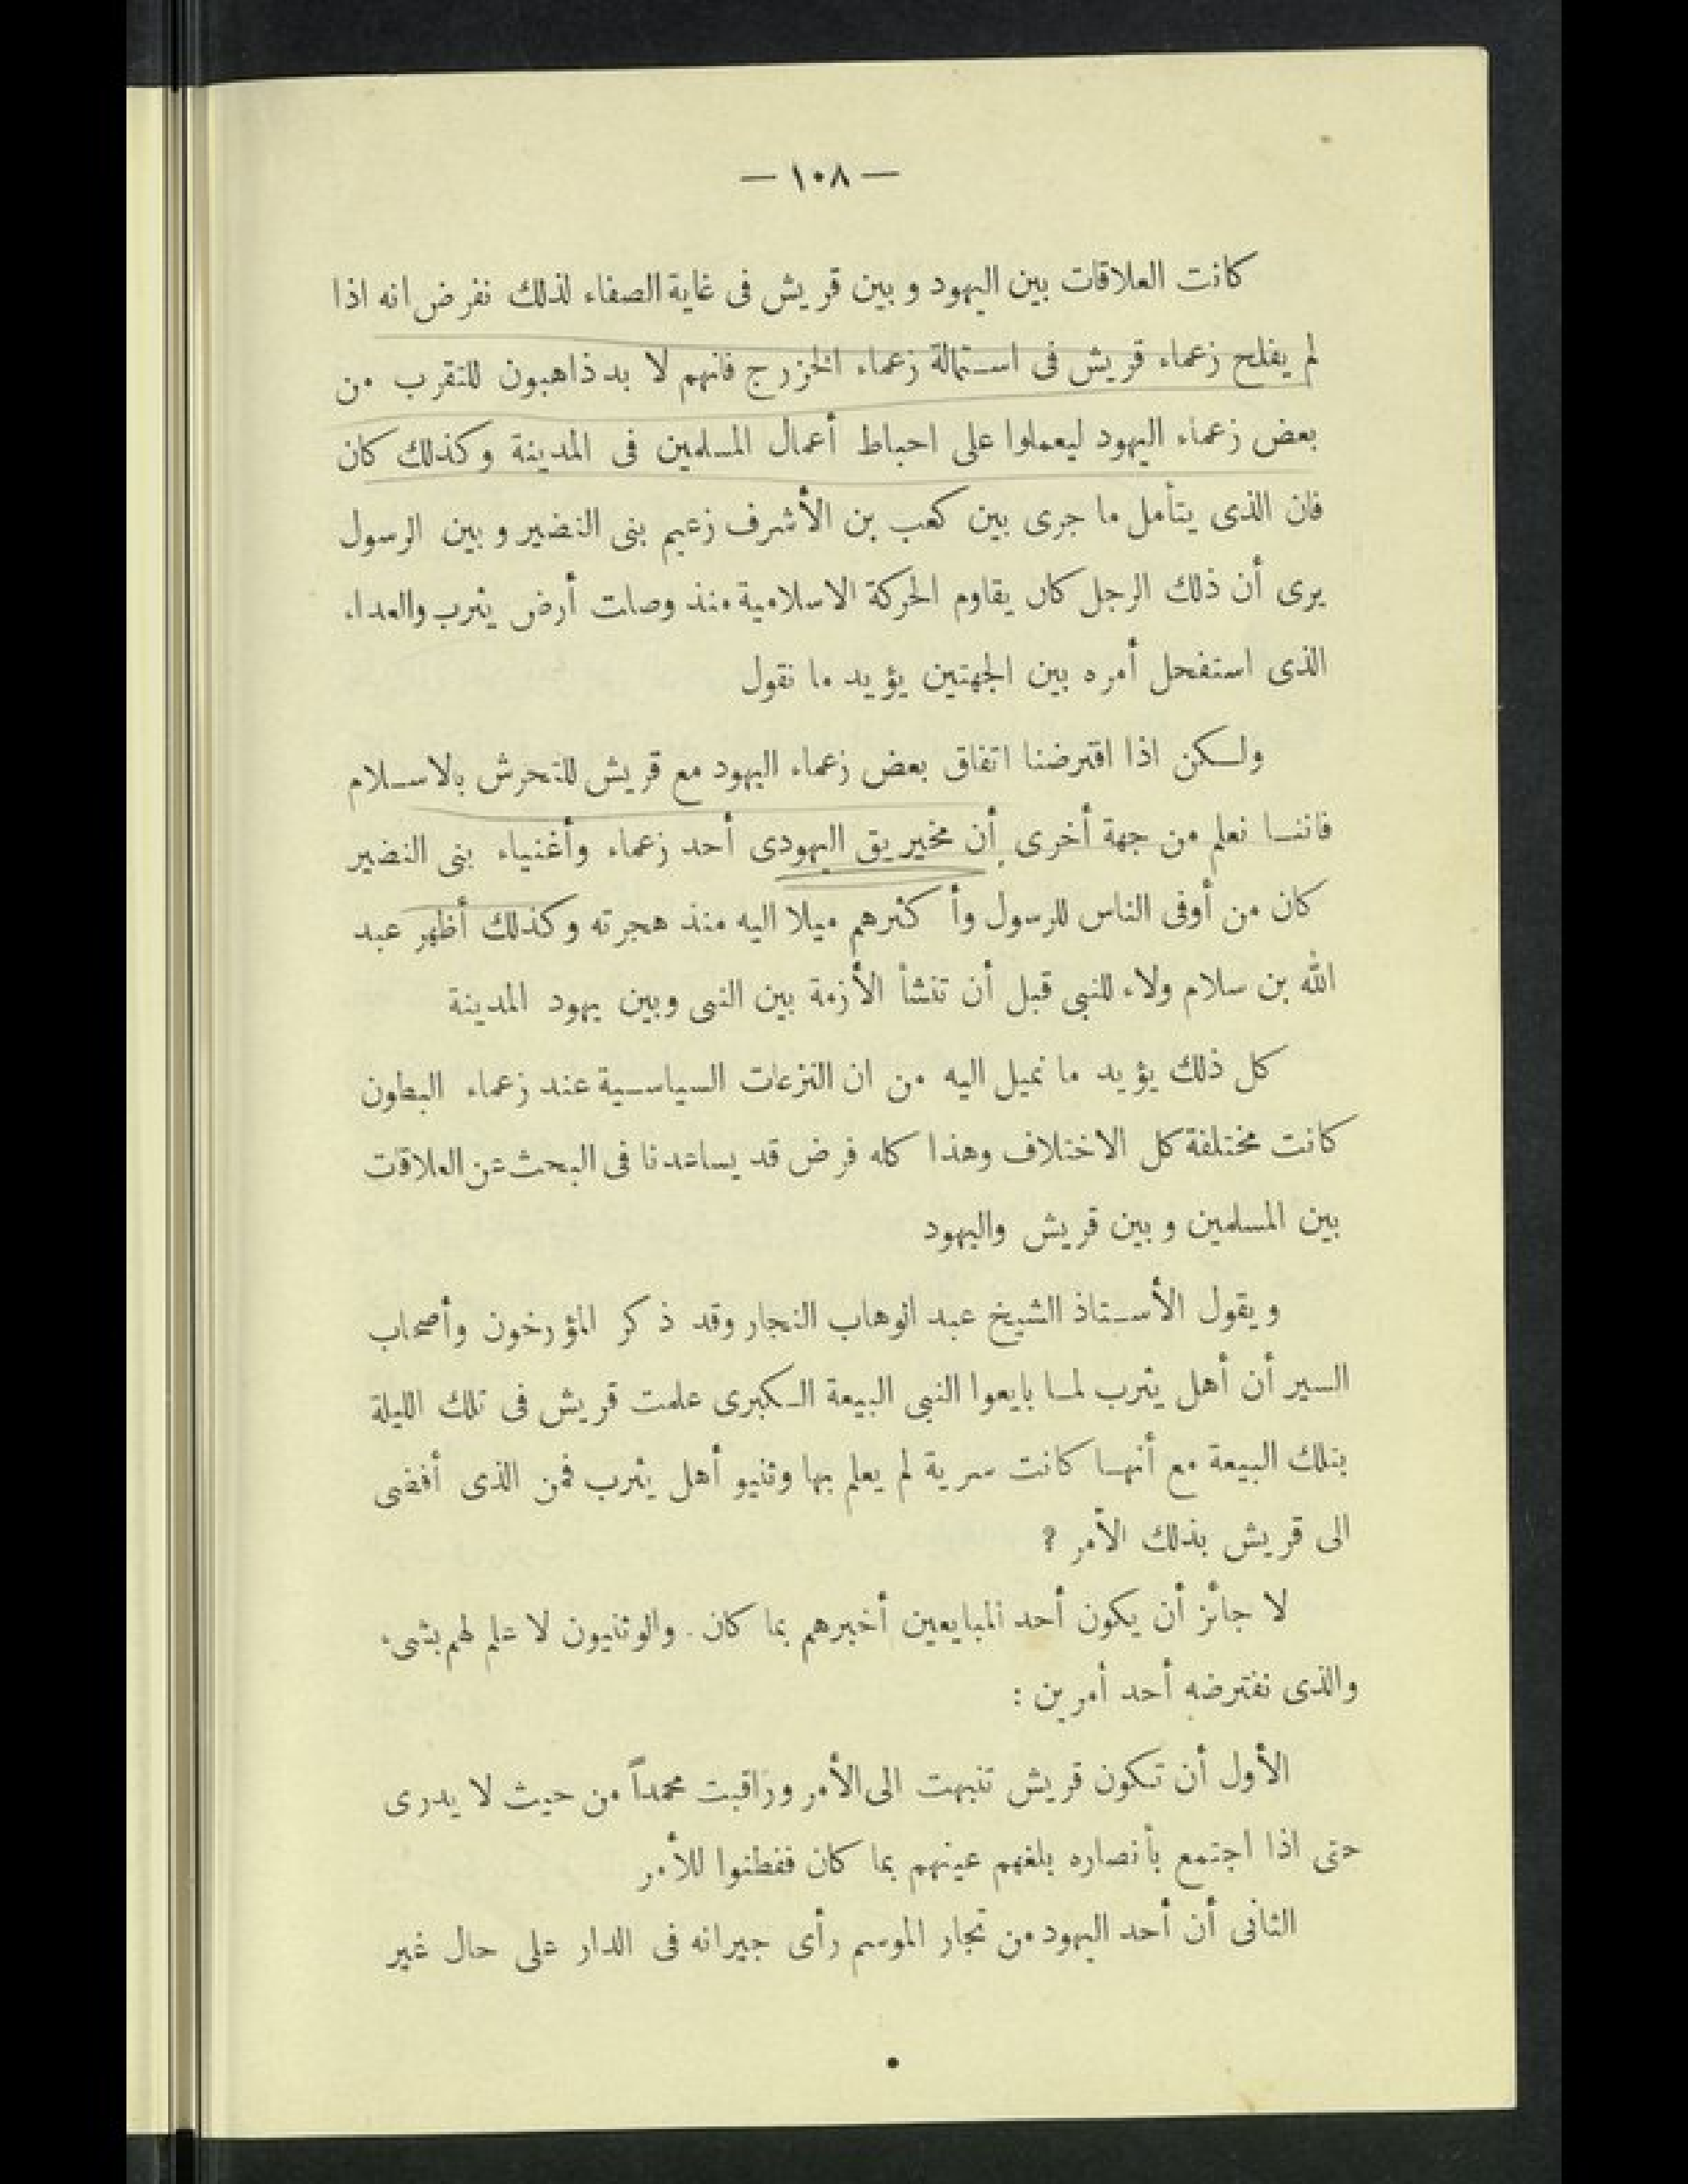 — ١٠٨ —
كانت العلاقات بين اليهود وبين قريش فى غاية الصفاء لذلك نفرض انه اذا
لم يفلح زعماء قريش فى استمالة زعماء الخزرج فانهم لا بد ذاهبون للتقرب من
بعض زعماء اليهود ليعملوا على احباط أعمال المسلمين فى المدينة وكذلك كان
فان الذى يتأمل ما جرى بين كعب بن الأشرف زعيم بنى النضير وبين الرسول
يرى أن ذلك الرجل كان يقاوم الحركة الاسلامية منذ وصلت أرض يثرب والعداء
الذى استفحل أمره بين الجهتين يؤيد ما نقول
ولكن اذا افترضنا اتفاق بعض زعماء اليهود مع قريش للتحرش بالاسلام
فاننا نعلم من جهة أخرى أن مخيريق اليهودى أحد زعماء وأغنياء بنى النضير
كان من أوفى الناس للرسول وأكثرهم ميلا اليه منذ هجرته وكذلك أظهر عبد
الله بن سلام ولاء للنبى قبل أن تنشأ الأزمة بين النبى وبين يهود المدينة
كل ذلك يؤيد ما نميل اليه من ان النزعات السياسية عند زعماء البطون
كانت مختلفة كل الاختلاف وهذا كله فرض قد يساعدنا فى البحث عن العلاقات
بين المسلمين وبين قريش واليهود
ويقول الأستاذ الشيخ عبد الوهاب النجار وقد ذكر المؤرخون وأصحاب
السير أن أهل يثرب لما بايعوا النبى البيعة الكبرى علمت قريش فى تلك الليلة
بتلك البيعة مع أنها كانت سرية لم يعلم بها وثنيو أهل يثرب فمن الذى أفضى
الى قريش بذلك الأمر ؟
لا جائز أن يكون أحد المبايعين أخبرهم بما كان . والوثنيون لا علم لهم بشىء
والذى نفترضه أحد أمرين :
الأول أن تكون قريش تنبهت الى الأمر وراقبت محمداً من حيث لا يدرى
حتى اذا اجتمع بأنصاره بلغهم عينهم بما كان ففطنوا للأمر
الثانى أن أحد اليهود من تجار الموسم رأى جيرانه فى الدار على حال غير